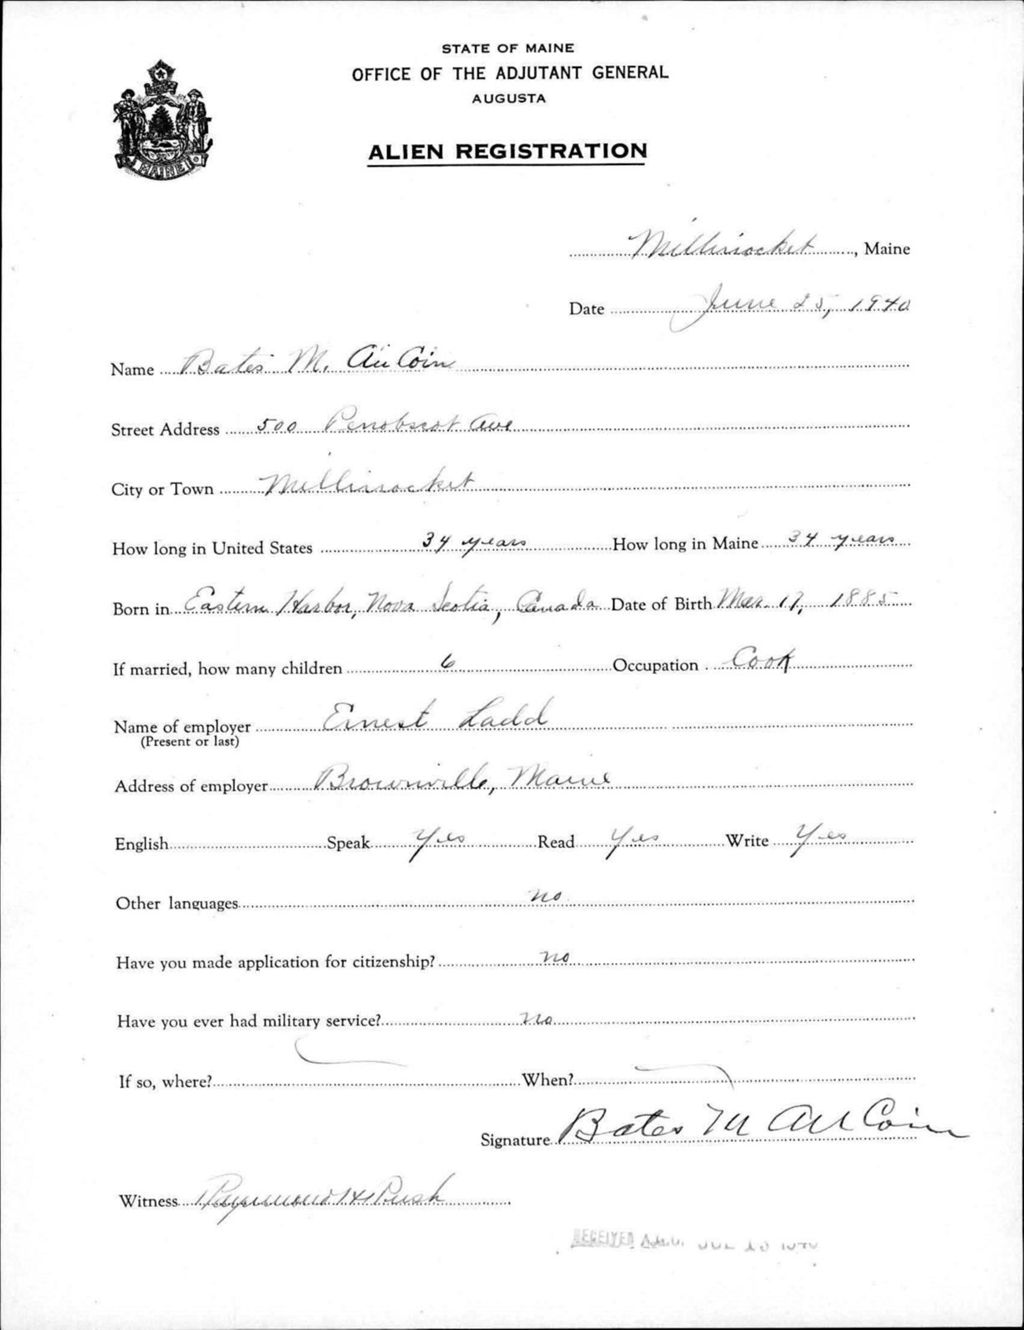 STATE OF MAINE
OFFICE OF THE ADJUTANT GENERAL
AUGUSTA
ALIEN REGISTRATION
MAINE
Millinocket, Maine
Date June 25, 1940
Name Bates M. AuCoin
Street Address 500 Penobscot Ave
City or Town Millinocket
How long in United States 34 years How long in Maine 34 years
Born in Eastern Harbor, Nova Scotia, Canada Date of Birth Mar. 17, 1885
If married, how many children 6 Occupation Cook
Name of employer Ernest Ladd
(Present or last)
Address of employer Brownville, Maine
English Speak Yes Read Yes Write Yes
Other languages no
Have you made application for citizenship? no
Have you ever had military service? no
If so, where? When?
Signature Bates M AuCoin
Witness Raymond H Rush
RECEIVED A.G.O. JUL 10 1940